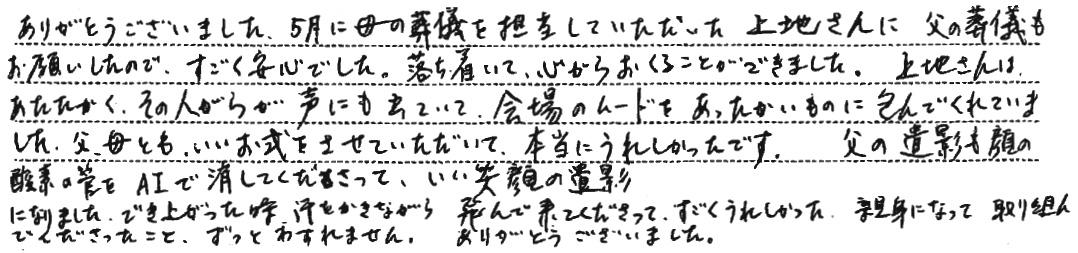 ありがとうございました。5月に母の葬儀を担当していただいた 上地さんに 父の葬儀も
お願いしたので、すごく安心でした。落ち着いて、心からおくることができました。上地さんは、
あたたかく、その人がらが 声にも出ていて、会場のムードを あったかいものに包んでくれていま
した。父、母とも、いいお式をさせていただいて、本当にうれしかったです。 父の遺影も顔の
酸素の管を AIで消してくださって、いい笑顔の遺影
になりました。でき上がった時、汗をかきながら 飛んで来てくださって、すごくうれしかった。親身になって 取り組ん
でくださったこと、ずっとわすれません。 ありがとうございました。